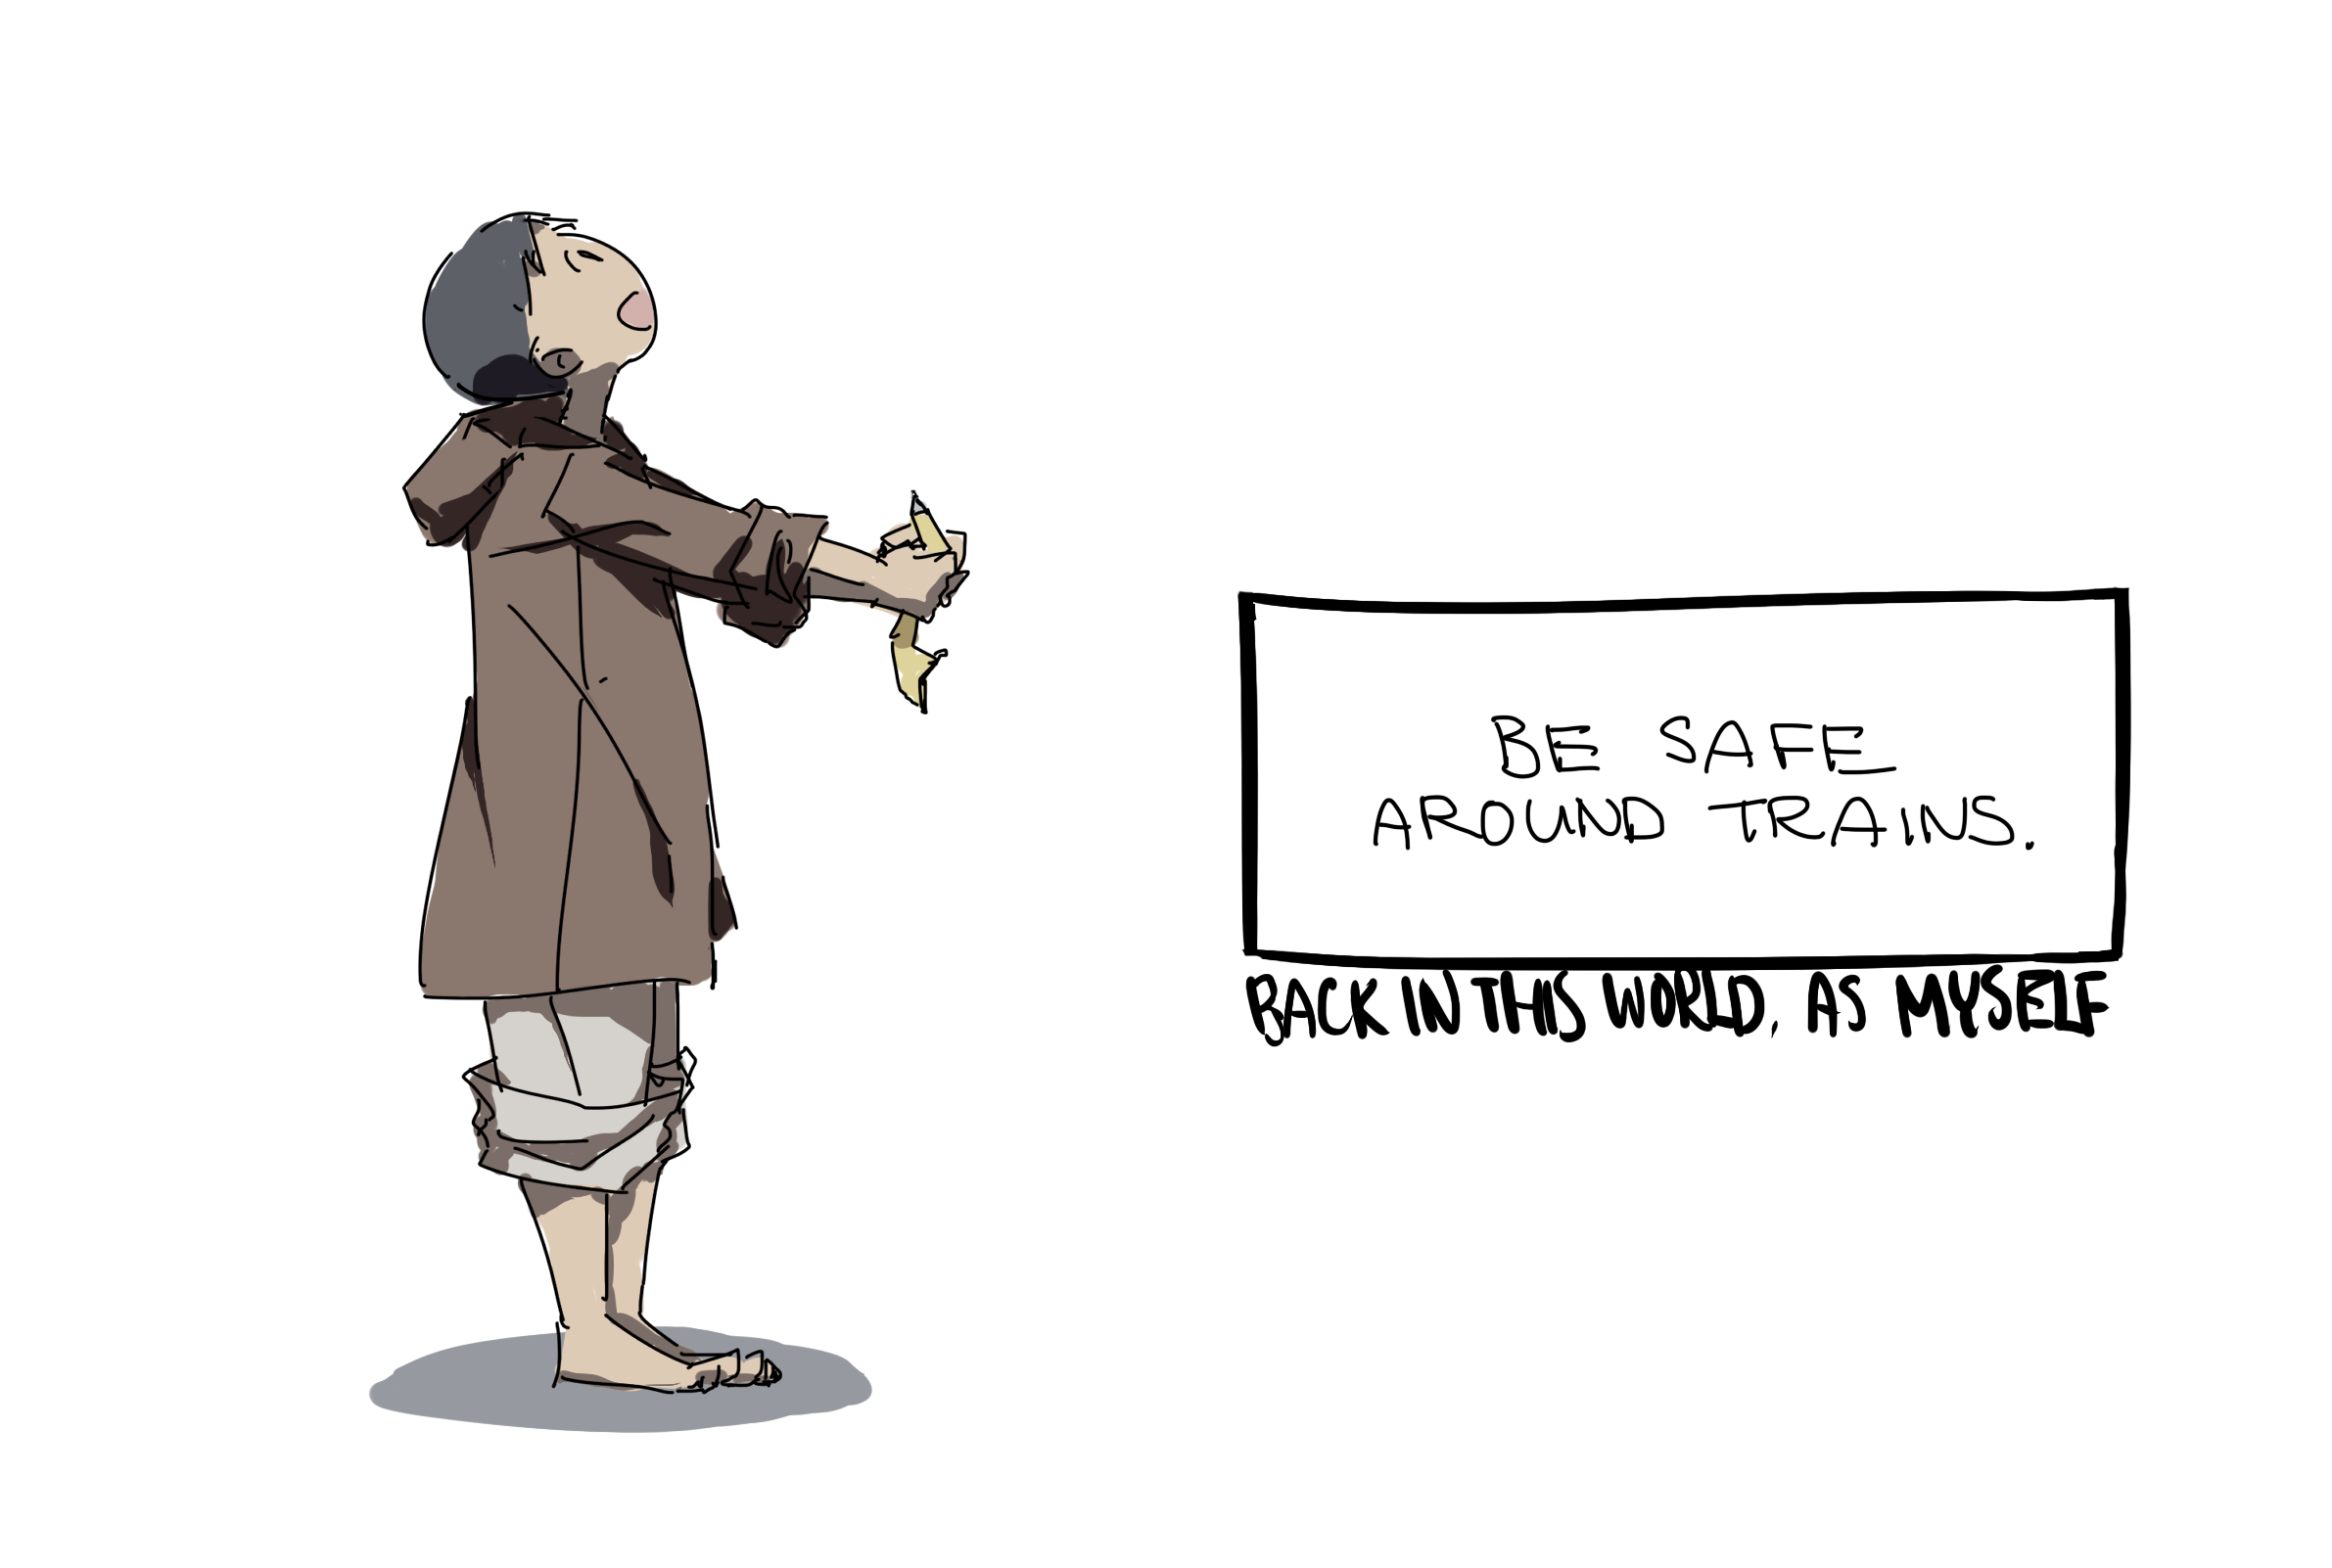 BE SAFE
AROUND TRAINS.
BACK IN THIS WORLD, AS MYSELF